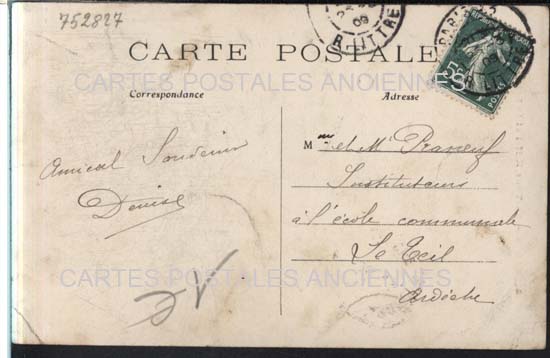 752827
CARTE POSTALE
CARTES POSTALES ANCIENNES
Correspondance
Adresse
Amical Souvenir
Denise
Mme et Mr Praneuf
Instituteurs
à l'école communale
Le Teil
Ardèche
CARTES POSTALES ANCIENNES
09
R. LITTRÉ
PARIS
09
R. LITTRÉ